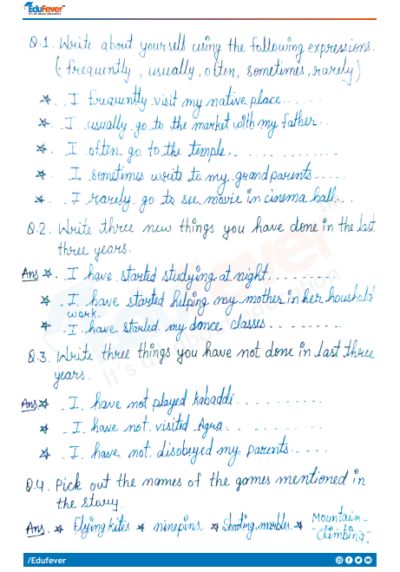 EduFever
Q.1. Write about yourself using the following expressions.
(frequently, usually, often, sometimes, rarely)
* I frequently visit my native place.......
* I usually go to the market with my father...
* I often go to the temple.............
* I sometimes write to my grandparents.....
* I rarely go to see movie in cinema hall...
Q.2. Write three new things you have done in the last
three years.
Ans * I have started studying at night.........
* I have started helping my mother in her houshold
work.
* I have started my dance classes..........
Q.3. Write three things you have not done in last three
years.
Ans * I have not played kabaddi..........
* I have not visited Agra..........
* I have not disobeyed my parents.....
Q.4. Pick out the names of the games mentioned in
the story.
Ans. * Flying kites * ninepins. * Shooting marbles. * Mountain-
climbing.
/Edufever